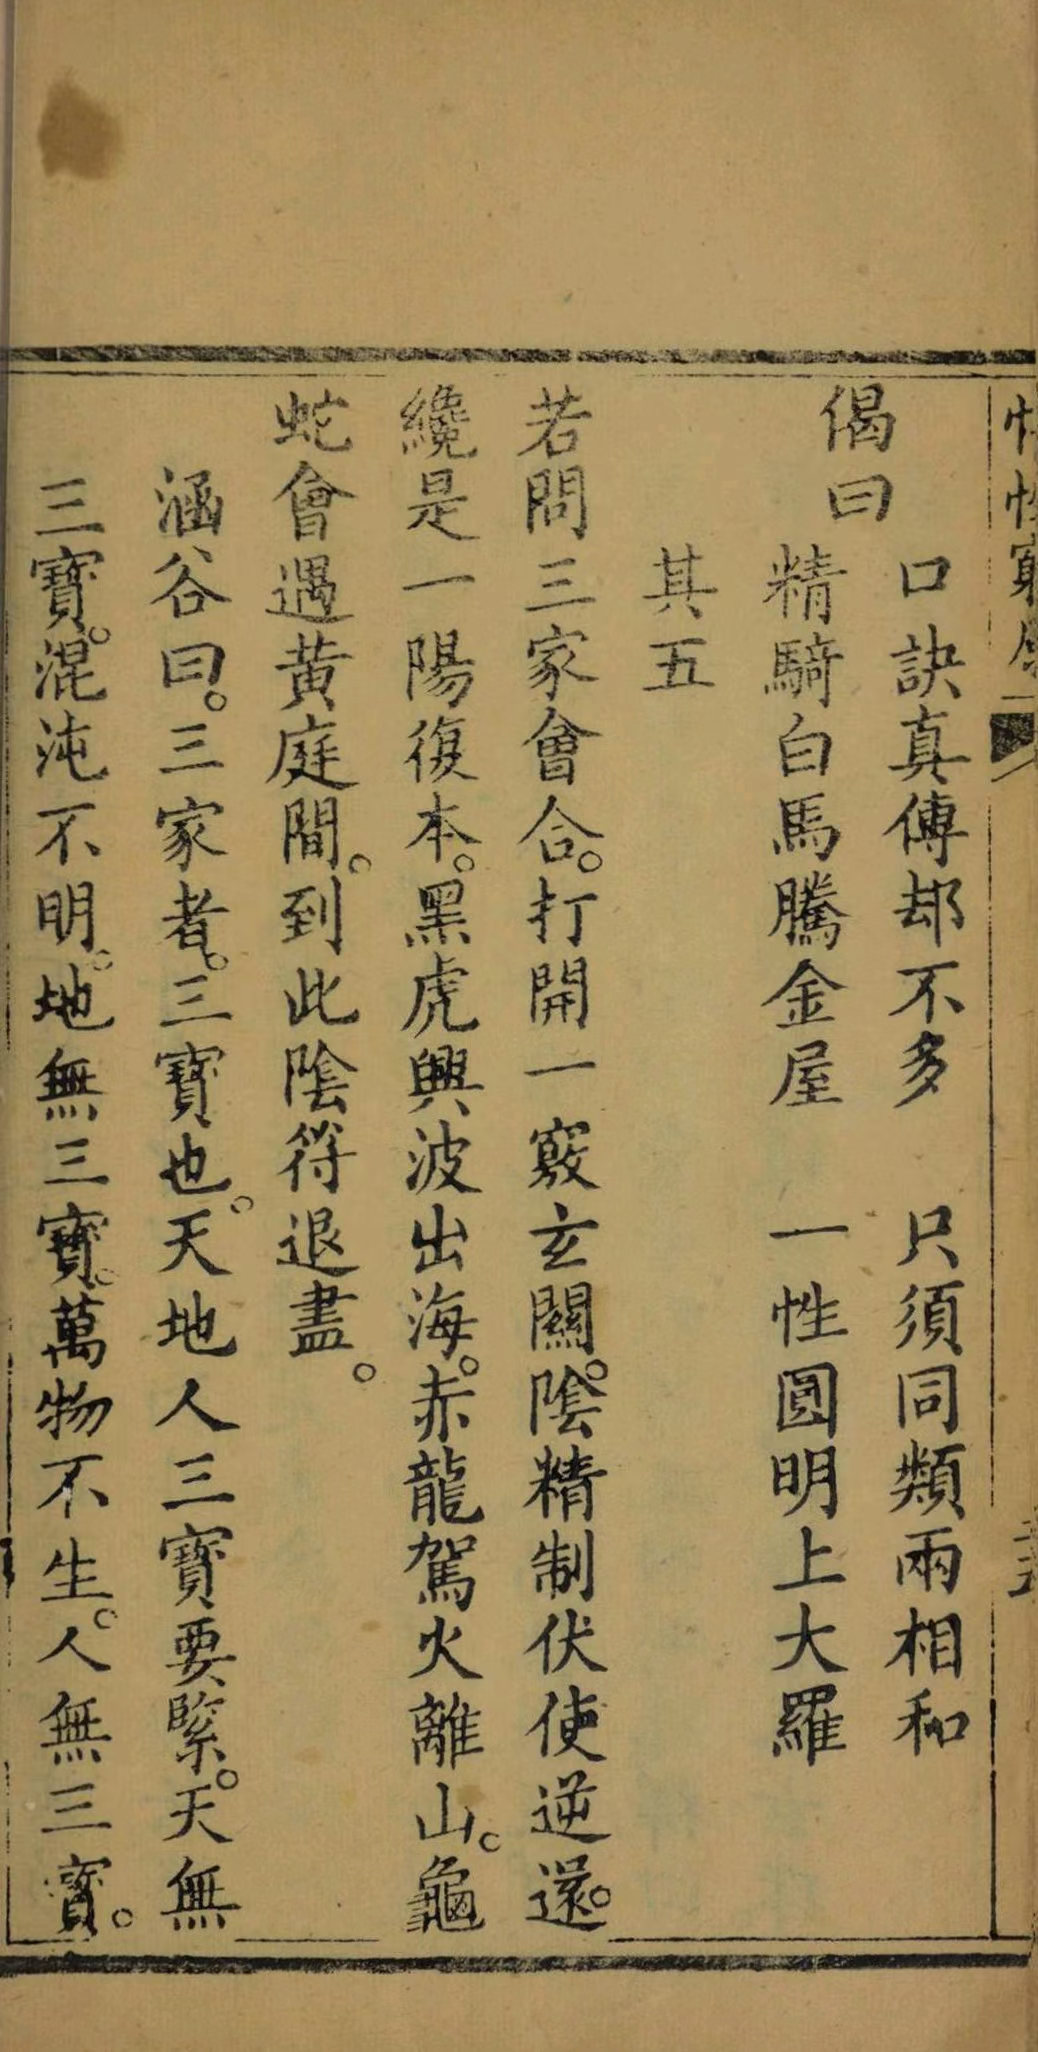 偈曰
口訣真傳却不多　只須同類兩相和
精騎白馬騰金屋　一性圓明上大羅
其五
若問三家會合。打開一竅玄關。陰精制伏使逆還。
纔是一陽復本。黑虎興波出海。赤龍駕火離山。龜
蛇會遇黃庭間。到此陰符退盡。
涵谷曰。三家者。三寶也。天地人三寶要緊。天無
三寶。混沌不明。地無三寶。萬物不生。人無三寶。